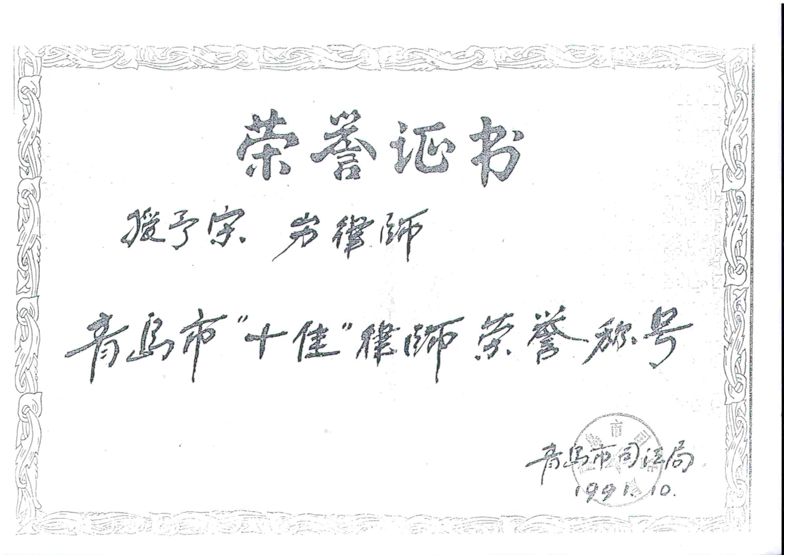 荣誉证书
授予宋 岩律师
青岛市"十佳"律师荣誉称号
青岛市司法局
1991.10.